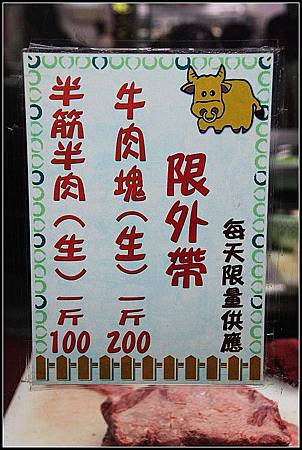 每天限量供應
限外帶
牛肉塊(生)一斤200
半筋半肉(生)一斤100